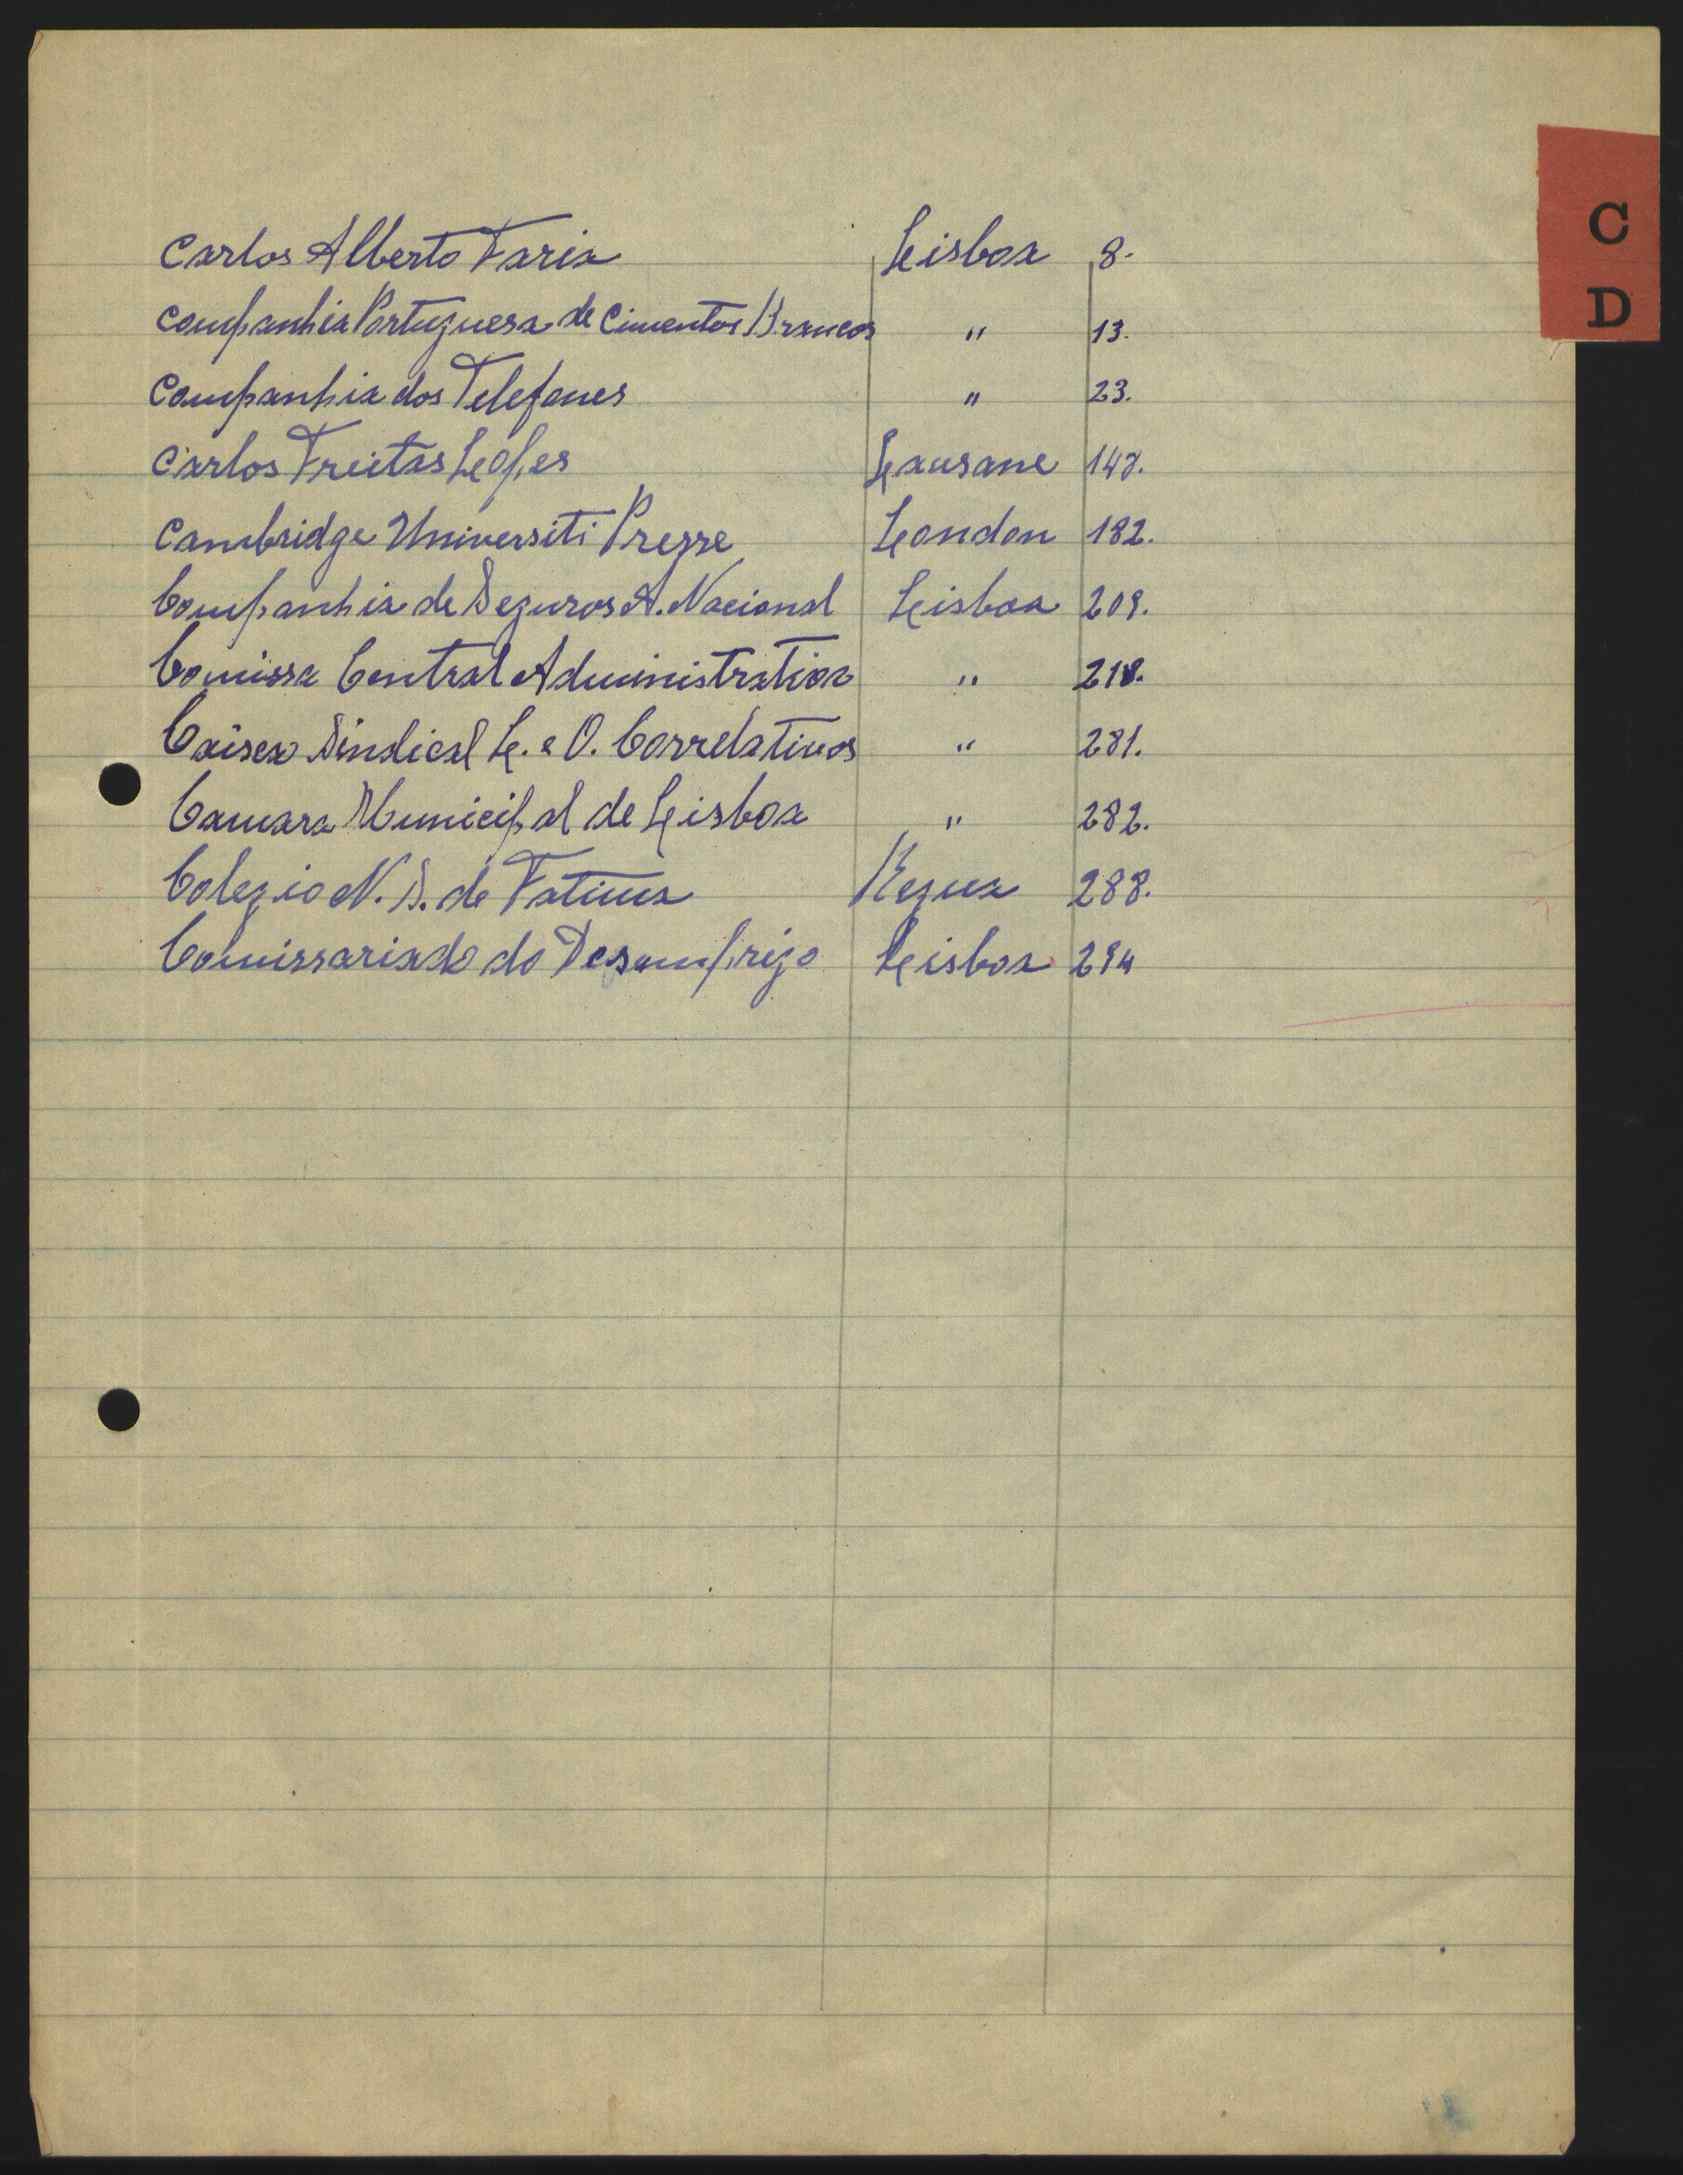 C
D
Carlos Alberto Faria Lisboa 8.
Companhia Portuguesa de Cimentos Brancos " 13.
Companhia dos Telefones " 23.
Carlos Freitas Lopes Lausane 147.
Cambridge Universiti Presse London 182.
Companhia de Seguros A. Nacional Lisboa 209.
Comissa Central Administrativa " 218.
Caisea Sindical L. e O. Correlativos " 281.
Camara Municipal de Lisboa " 282.
Colegio N. S. de Fatima Regua 288.
Comissariado do Desemprigo Lisboa 294